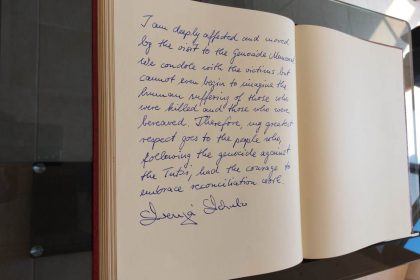 I am deeply affected and moved
by the visit to the Genocide Memorial
We condole with the victims but
cannot even begin to imagine the
human suffering of those who
were killed and those who were
bereaved. Therefore, my greatest
respect goes to the people who,
following the genocide against
the Tutsi, had the courage to
embrace reconciliation work.
Svenja Schulze